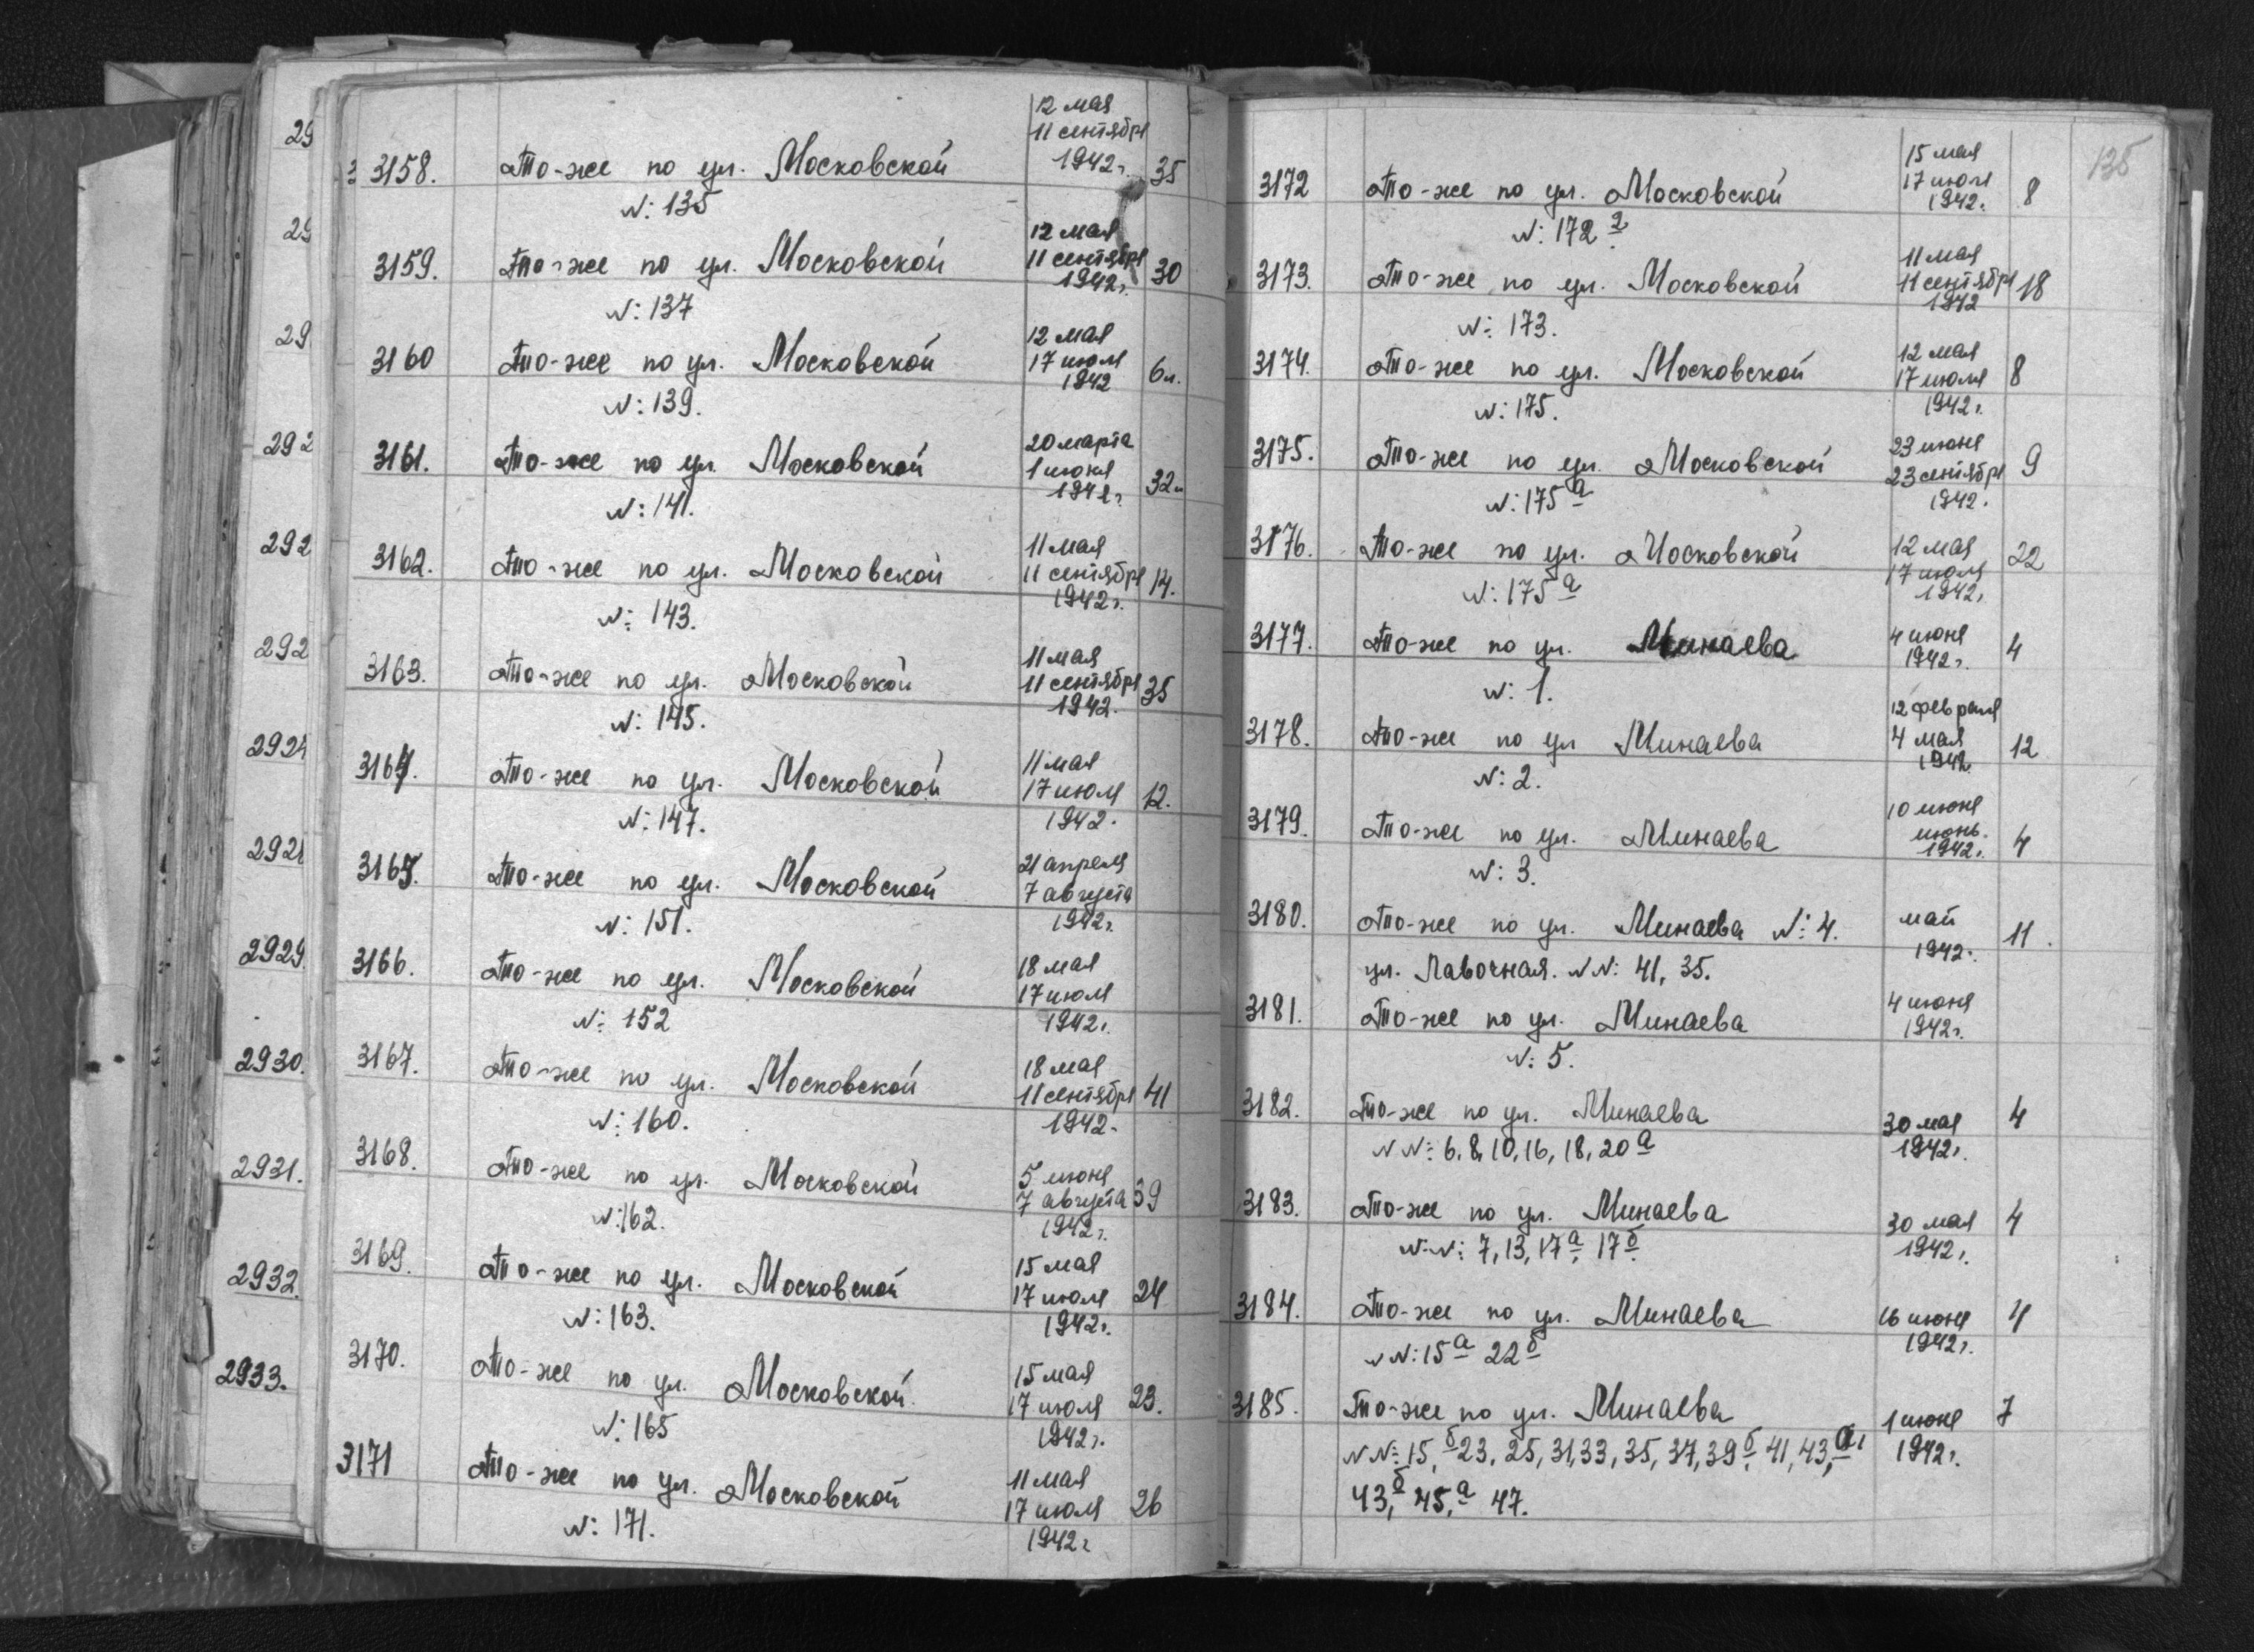 29
29
29
292
292
292
2924
2928
2929.
2930.
2931.
2932.
2933.
3158. То-же по ул. Московской 12 мая
11 сентября
1942 г. 35
N: 135
3159. То-же по ул. Московской 12 мая
11 сентября
1942 г. 30
N: 137
3160 То-же по ул. Московской 12 мая
17 июля
1942 6 л.
N: 139.
3161. То-же по ул. Московской 20 марта
1 июня
1942 г. 32 л
N: 141.
3162. То-же по ул. Московской 11 мая
11 сентября
1942 г. 14.
N: 143.
3163. То-же по ул. Московской 11 мая
11 сентября
1942. 35
N: 145.
3164. То-же по ул. Московской 11 мая
17 июля
1942. 12.
N: 147.
3165. То-же по ул. Московской 21 апреля
7 августа
1942 г.
N: 151.
3166. То-же по ул. Московской 18 мая
17 июля
1942 г.
N: 152
3167. То-же по ул. Московской 18 мая
11 сентября
1942. 41
N: 160.
3168. То-же по ул. Московской 5 июня
7 августа
1942 г. 39
N: 162.
3169. То-же по ул. Московской 15 мая
17 июля
1942 г. 24
N: 163.
3170. То-же по ул. Московской. 15 мая
17 июля
1942 г. 23.
N: 165
3171 То-же по ул. Московской 11 мая
17 июля
1942 г 26
N: 171.
135
3172 То-же по ул. Московской 15 мая
17 июля
1942. 8
N: 172 г
3173. То-же по ул. Московской 11 мая
11 сентября
1942 18
N: 173.
3174. То-же по ул. Московской 12 мая
17 июля
1942 г. 8
N: 175.
3175. То-же по ул. Московской 23 июня
23 сентября
1942. 9
N: 175 а
3176. То-же по ул. Московской 12 мая
17 июля
1942 г. 22
N: 175 а
3177. То-же по ул. Минаева 4 июня
1942 г. 4
N: 1.
3178. То-же по ул Минаева 12 февраля
4 мая
1942 12
N: 2.
3179. То-же по ул. Минаева 10 июня
июнь.
1942 г. 4
N: 3.
3180. То-же по ул. Минаева N: 4. май
1942. 11.
ул. Лавочная. NN: 41, 35.
3181. То-же по ул. Минаева 4 июня
1942 г.
N: 5.
3182. То-же по ул. Минаева 30 мая
1942 г. 4
NN: 6, 8, 10, 16, 18, 20 а
3183. То-же по ул. Минаева 30 мая
1942 г. 4
NN: 7, 13, 17 а, 17 б
3184. То-же по ул. Минаева 16 июня
1942 г. 4
NN: 15 а 22 б
3185. То-же по ул. Минаева 1 июня
1942 г. 7
NN: 15, б 23, 25, 31, 33, 35, 37, 39 б, 41, 43, а,
43, б 45, а 47.